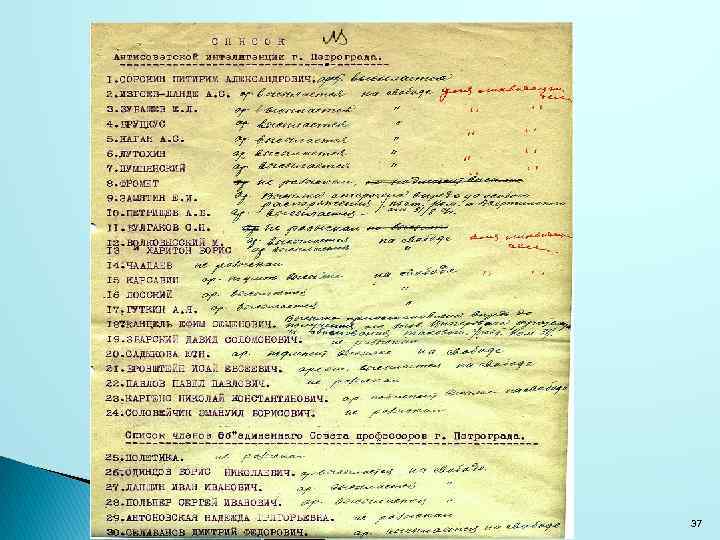 СПИСОК
Антисоветской интеллигенции г. Петрограда.
1. СОРОКИН ПИТИРИМ АЛЕКСАНДРОВИЧ. ар. высылается
2. ИЗГОЕВ-ЛАНДЕ А.С. ар. высылается на свободе
3. ЗУБАШЕВ Е.Л. ар высылается "
4. БРУЦКУС ар. высылается "
5. КАГАН А.С. ар. высылается "
6. ЛУТОХИН ар. высылается "
7. ПУМПЯНСКИЙ ар. высылается "
8. ФРОМЕТ не разыскан
9. ЗАМЯТИН Е.И. ар.
10. ПЕТРИЩЕВ А.Б. ар. высылается
11. БУЛГАКОВ С.Н. не разыскан
12. ВОЛКОВЫССКИЙ Н. ар. высылается на свободе
13 " ХАРИТОН БОРИС ар высылается "
14. ЧААДАЕВ не разыскан
15 КАРСАВИН ар. на свободе
16 ЛОССКИЙ ар. высылается "
17. ГУТКИН А.Я. ар. высылается "
18. КАНЦЕЛЬ ЕФИМ СЕМЕНОВИЧ.
19. ЗБАРСКИЙ ДАВИД СОЛОМОНОВИЧ. не разыскан
20. САДЫКОВА ар. подлежит высылке на свободе
21. БРОНШТЕЙН ИСАЙ ЕВСЕЕВИЧ. арест. высылается на свободе
22. ПАВЛОВ ПАВЕЛ ПАВЛОВИЧ. не разыскан
23. КАРГЕНС НИКОЛАЙ КОНСТАНТИНОВИЧ. ар на свободе
24. СОЛОВЕЙЧИК ЭМАНУИЛ БОРИСОВИЧ. не разыскан
Список членов Об"единенного Совета профессоров г. Петрограда.
25. ПОЛЕТИКА. не разыскан
26. ОДИНЦОВ БОРИС НИКОЛАЕВИЧ. ар высылается на свободе
27. ЛАПШИН ИВАН ИВАНОВИЧ. ар. высылается "
28. ПОЛЬНЕР СЕРГЕЙ ИВАНОВИЧ. ар. высылается "
29. АНТОНОВСКАЯ НАДЕЖДА ГРИГОРЬЕВНА. не разыскан
30. СЕЛИВАНОВ ДМИТРИЙ ФЕДОРОВИЧ. ар. высылается на свободе
37